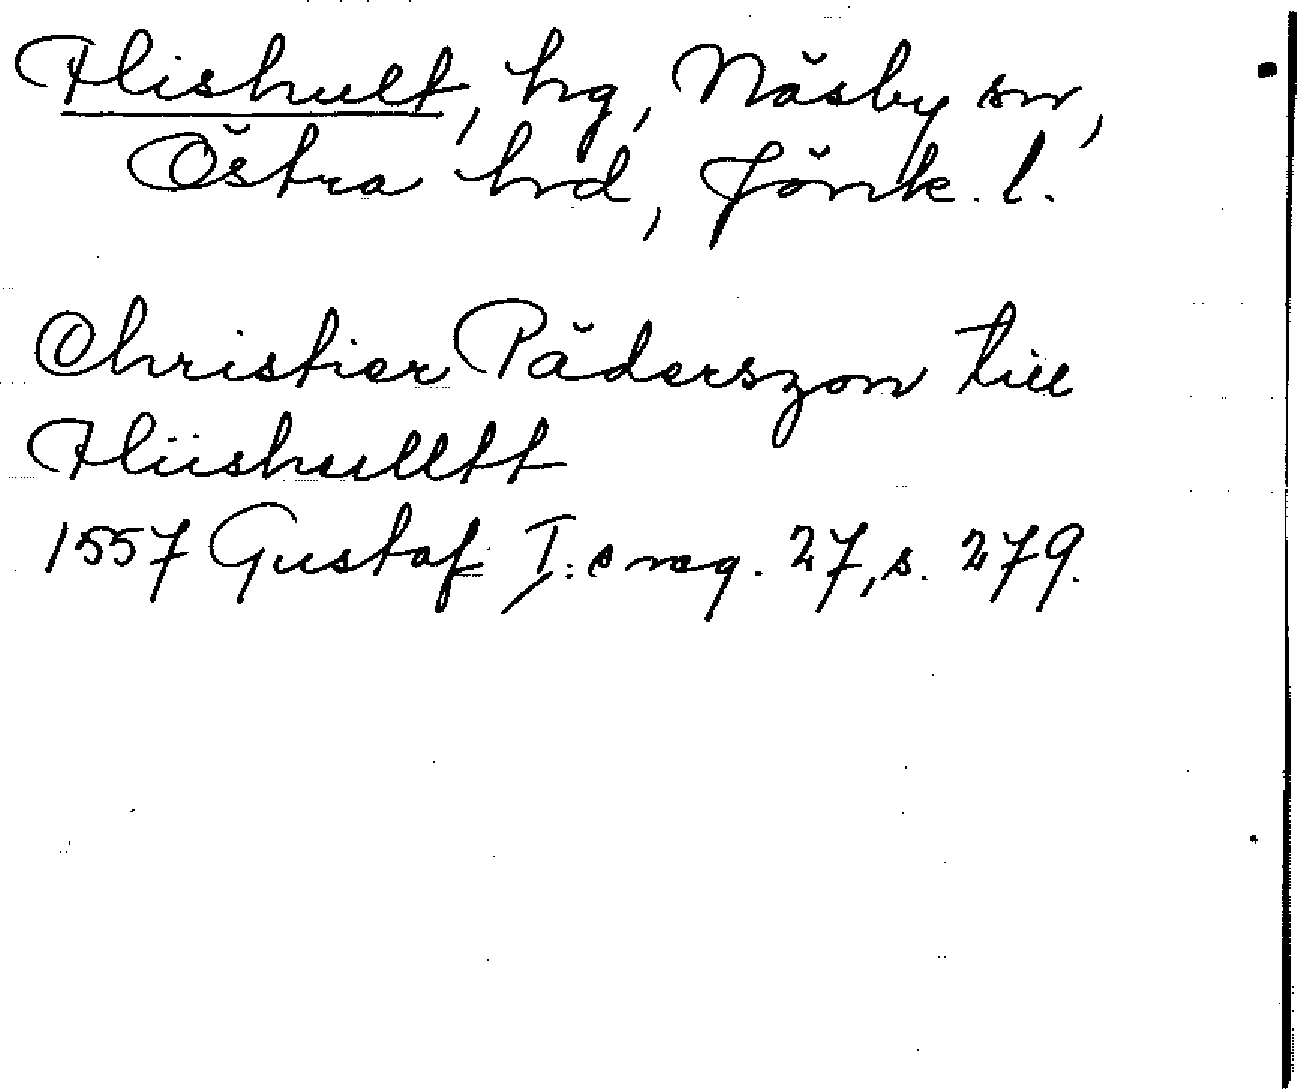 Flishult, hg, Näsby sn,
Östra hrd, Jönk. l.
Christier Päderszon till
Fliishulltt
1557 Gustaf I:s reg. 27, s. 279.